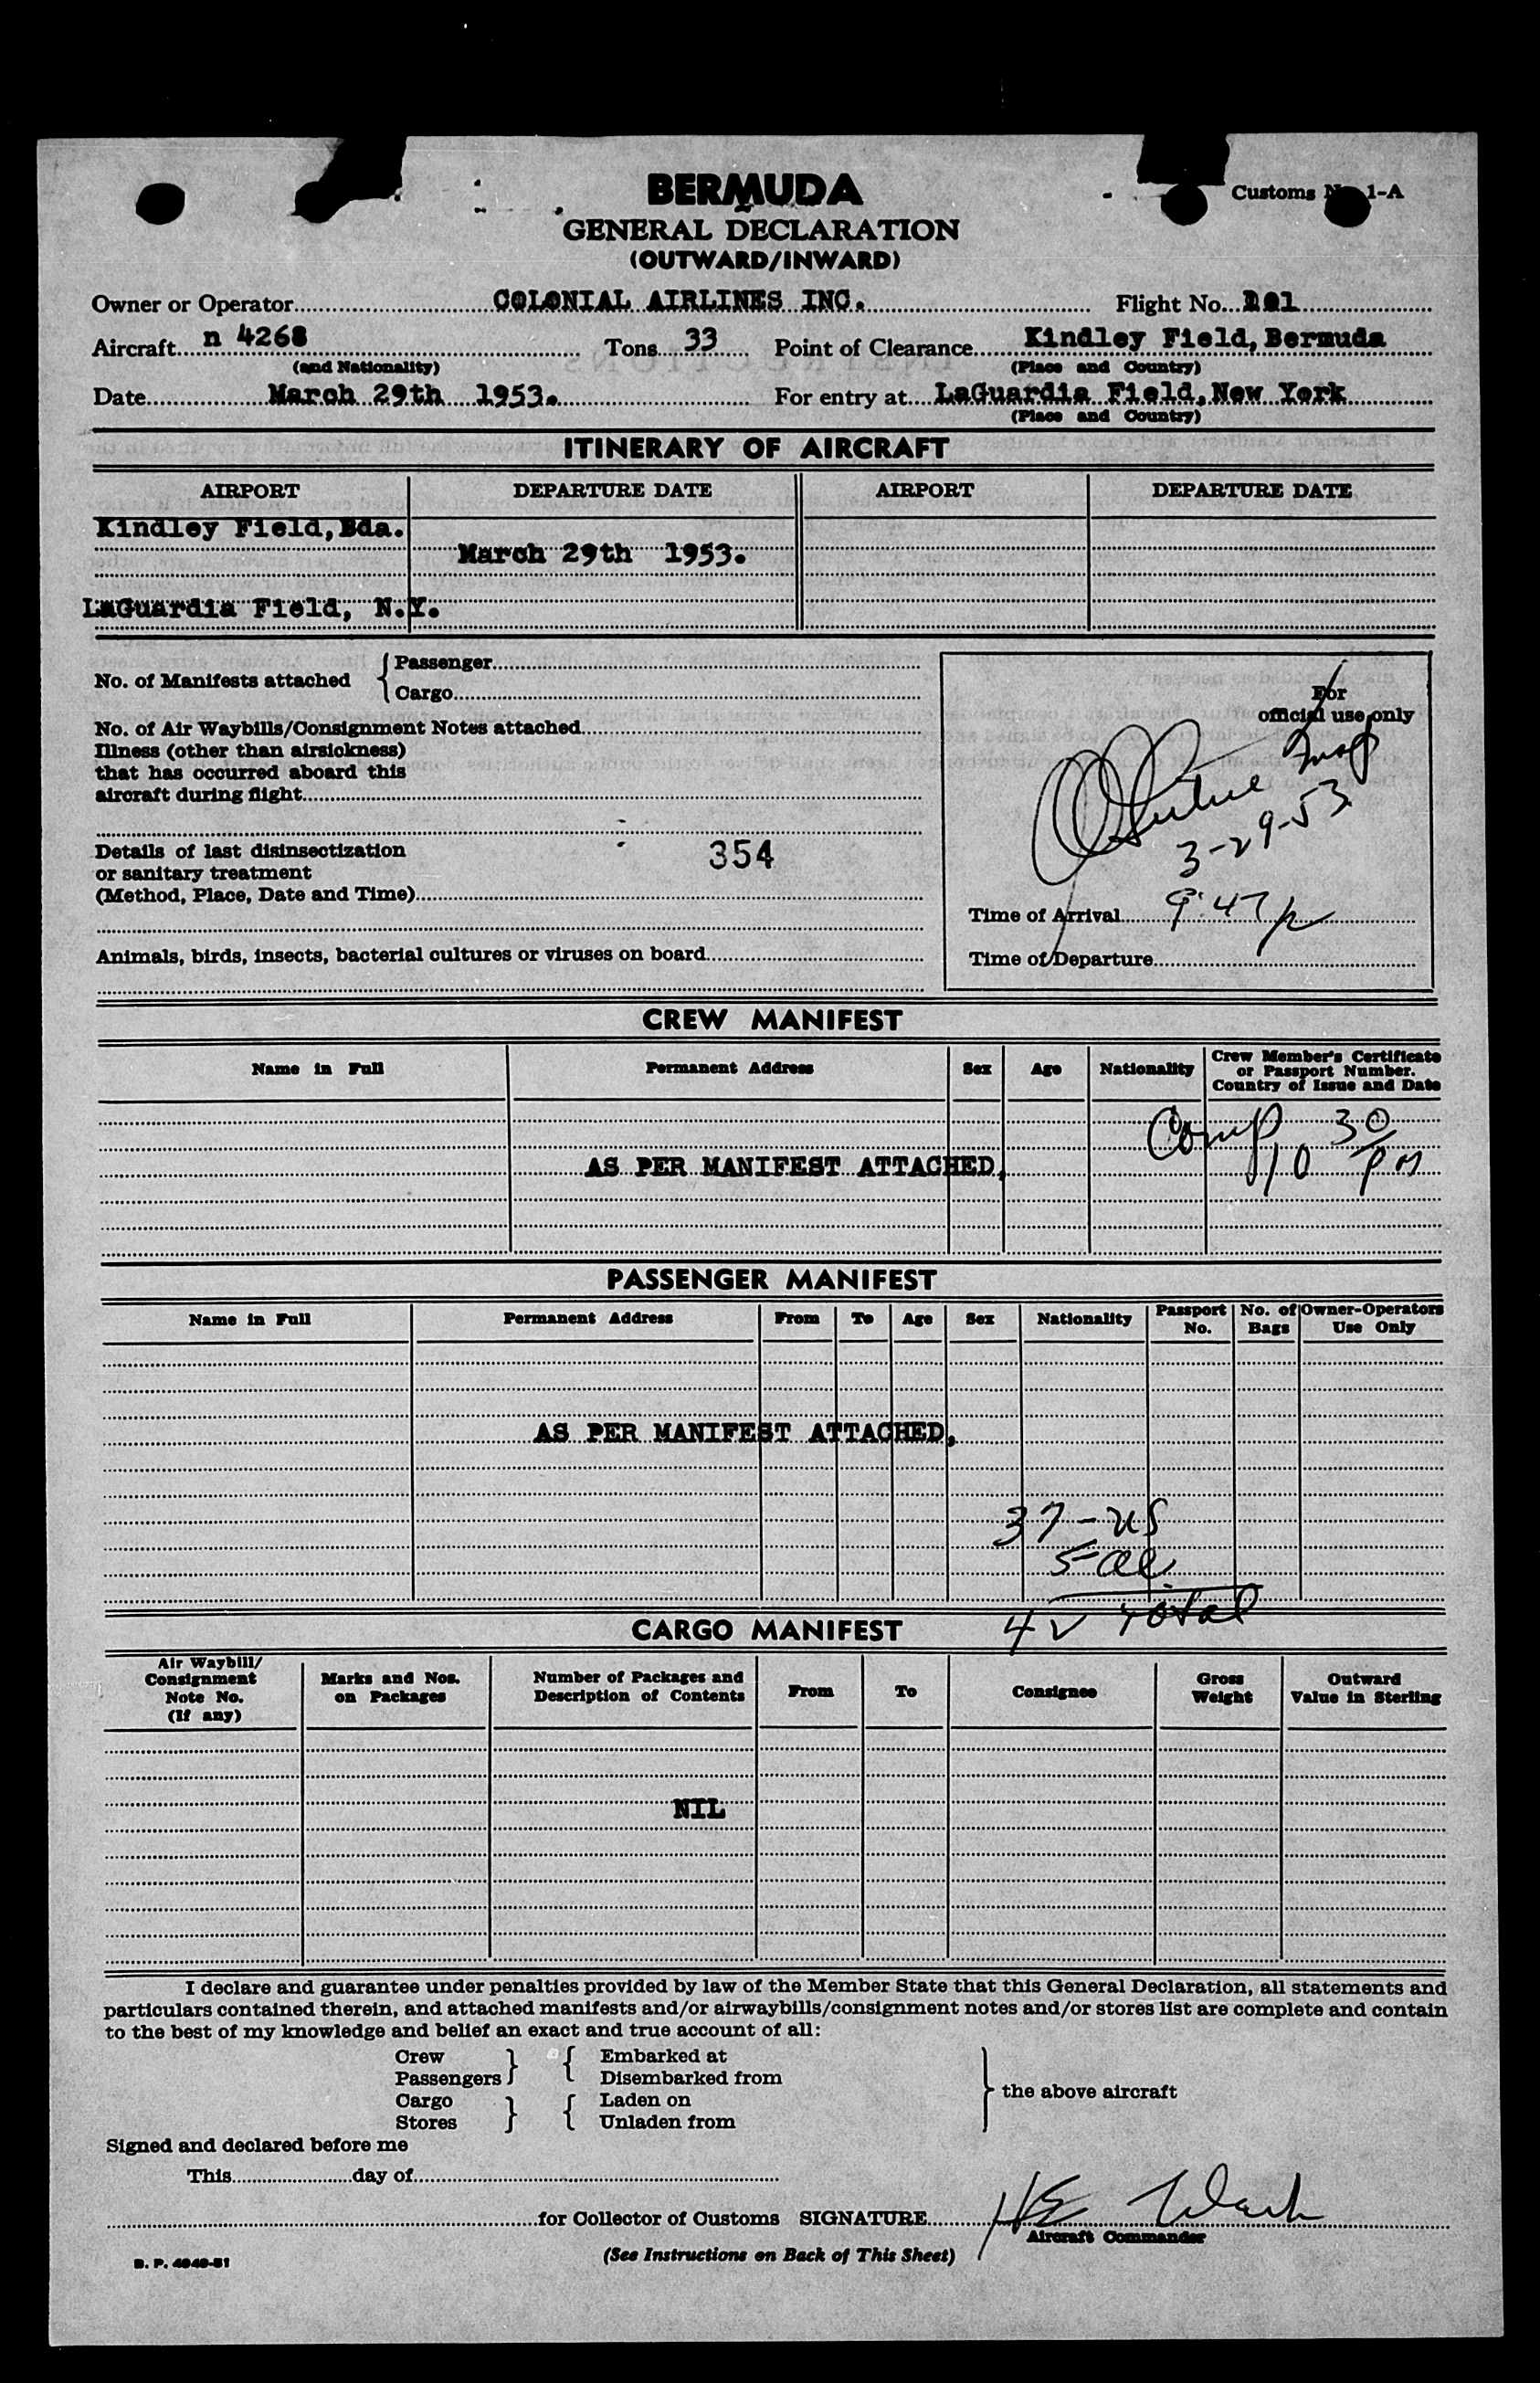 BERMUDA
Customs 1-A
GENERAL DECLARATION
(OUTWARD/INWARD)
Owner or Operator COLONIAL AIRLINES INC. Flight No.
Aircraft n 4268 Tons 33 Point of Clearance Kindley Field, Bermuda
(and Nationality) (Place and Country)
Date March 29th 1953. For entry at LaGuardia Field, New York
(Place and Country)
ITINERARY OF AIRCRAFT
AIRPORT DEPARTURE DATE AIRPORT DEPARTURE DATE
Kindley Field, Bda.
March 29th 1953.
LaGuardia Field, N.Y.
No. of Manifests attached { Passenger
Cargo
For
official use only
No. of Air Waybills/Consignment Notes attached
Illness (other than airsickness)
that has occurred aboard this
aircraft during flight
Insp
3-29-53
Details of last disinsectization
or sanitary treatment
(Method, Place, Date and Time)
354
Time of Arrival 9:47 p
Animals, birds, insects, bacterial cultures or viruses on board
Time of Departure
CREW MANIFEST
Name in Full Permanent Address Sex Age Nationality Crew Member's Certificate
or Passport Number.
Country of Issue and Date
Comp 10 30 PM
AS PER MANIFEST ATTACHED,
PASSENGER MANIFEST
Name in Full Permanent Address From To Age Sex Nationality Passport No. No. of Bags Owner-Operators Use Only
AS PER MANIFEST ATTACHED,
37-US
5-al
42 total
CARGO MANIFEST
Air Waybill/
Consignment
Note No.
(If any)
Marks and Nos.
on Packages
Number of Packages and
Description of Contents
From To Consignee
Gross
Weight
Outward
Value in Sterling
NIL
I declare and guarantee under penalties provided by law of the Member State that this General Declaration, all statements and
particulars contained therein, and attached manifests and/or airwaybills/consignment notes and/or stores list are complete and contain
to the best of my knowledge and belief an exact and true account of all:
Crew } { Embarked at
Passengers Disembarked from
} the above aircraft
Cargo } { Laden on
Stores Unladen from
Signed and declared before me
This day of
for Collector of Customs SIGNATURE HE
Aircraft Commander
(See Instructions on Back of This Sheet)
B. P. 4040-51